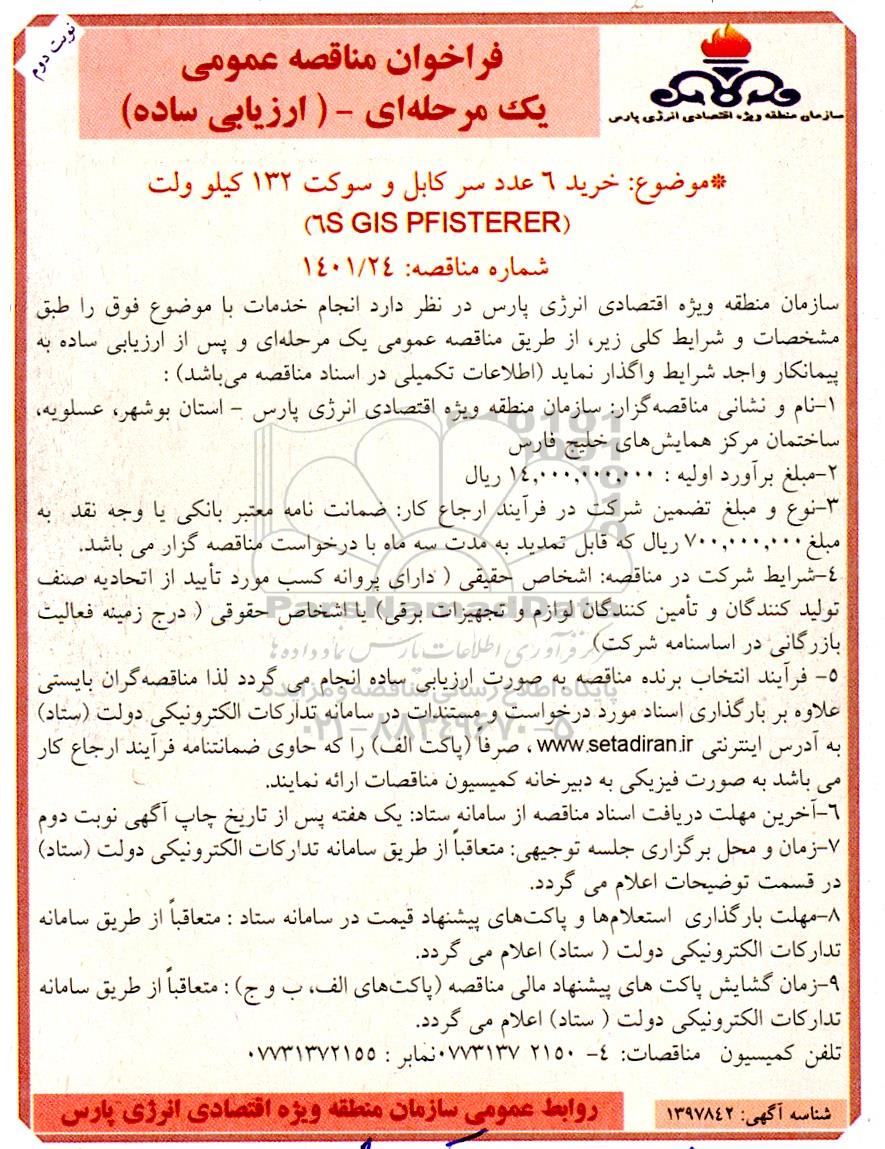 نوبت دوم
فراخوان مناقصه عمومی
یک مرحله‌ای - ( ارزیابی ساده)
سازمان منطقه ویژه اقتصادی انرژی پارس
*موضوع: خرید ٦ عدد سر کابل و سوکت ۱۳۲ کیلو ولت
(٦S GIS PFISTERER)
شماره مناقصه: ١٤٠١/٢٤
سازمان منطقه ویژه اقتصادی انرژی پارس در نظر دارد انجام خدمات با موضوع فوق را طبق
مشخصات و شرایط کلی زیر، از طریق مناقصه عمومی یک مرحله‌ای و پس از ارزیابی ساده به
پیمانکار واجد شرایط واگذار نماید (اطلاعات تکمیلی در اسناد مناقصه می‌باشد) :
١-نام و نشانی مناقصه‌گزار: سازمان منطقه ویژه اقتصادی انرژی پارس – استان بوشهر، عسلویه،
ساختمان مرکز همایش‌های خلیج فارس
٢-مبلغ برآورد اولیه : ١٤,٠٠٠,٠٠٠,٠٠٠ ریال
٣-نوع و مبلغ تضمین شرکت در فرآیند ارجاع کار: ضمانت نامه معتبر بانکی یا وجه نقد به
مبلغ ٧٠٠,٠٠٠,٠٠٠ ریال که قابل تمدید به مدت سه ماه با درخواست مناقصه گزار می باشد.
٤-شرایط شرکت در مناقصه: اشخاص حقیقی ( دارای پروانه کسب مورد تأیید از اتحادیه صنف
تولید کنندگان و تأمین کنندگان لوازم و تجهیزات برقی) یا اشخاص حقوقی ( درج زمینه فعالیت
بازرگانی در اساسنامه شرکت)
٥- فرآیند انتخاب برنده مناقصه به صورت ارزیابی ساده انجام می گردد لذا مناقصه‌گران بایستی
علاوه بر بارگذاری اسناد مورد درخواست و مستندات در سامانه تدارکات الکترونیکی دولت (ستاد)
به آدرس اینترنتی www.setadiran.ir ، صرفاً (پاکت الف) را که حاوی ضمانتنامه فرآیند ارجاع کار
می باشد به صورت فیزیکی به دبیرخانه کمیسیون مناقصات ارائه نمایند.
٦-آخرین مهلت دریافت اسناد مناقصه از سامانه ستاد: یک هفته پس از تاریخ چاپ آگهی نوبت دوم
٧-زمان و محل برگزاری جلسه توجیهی: متعاقباً از طریق سامانه تدارکات الکترونیکی دولت (ستاد)
در قسمت توضیحات اعلام می گردد.
٨-مهلت بارگذاری استعلام‌ها و پاکت‌های پیشنهاد قیمت در سامانه ستاد : متعاقباً از طریق سامانه
تدارکات الکترونیکی دولت ( ستاد) اعلام می گردد.
٩-زمان گشایش پاکت های پیشنهاد مالی مناقصه (پاکت‌های الف، ب و ج) : متعاقباً از طریق سامانه
تدارکات الکترونیکی دولت ( ستاد) اعلام می گردد.
تلفن کمیسیون مناقصات: ٤- ٢١٥٠ ٠٧٧٣١٣٧نمابر : ٠٧٧٣١٣٧٢١٥٥
شناسه آگهی: ١٣٩٧٨٤٢
روابط عمومی سازمان منطقه ویژه اقتصادی انرژی پارس
ParsNamadData
مرکز فرآوری اطلاعات پارس نماد داده‌ها
پایگاه اطلاع رسانی مناقصه و مزایده
٠٢١-٨٨٣٤٩٦٧٠-٥